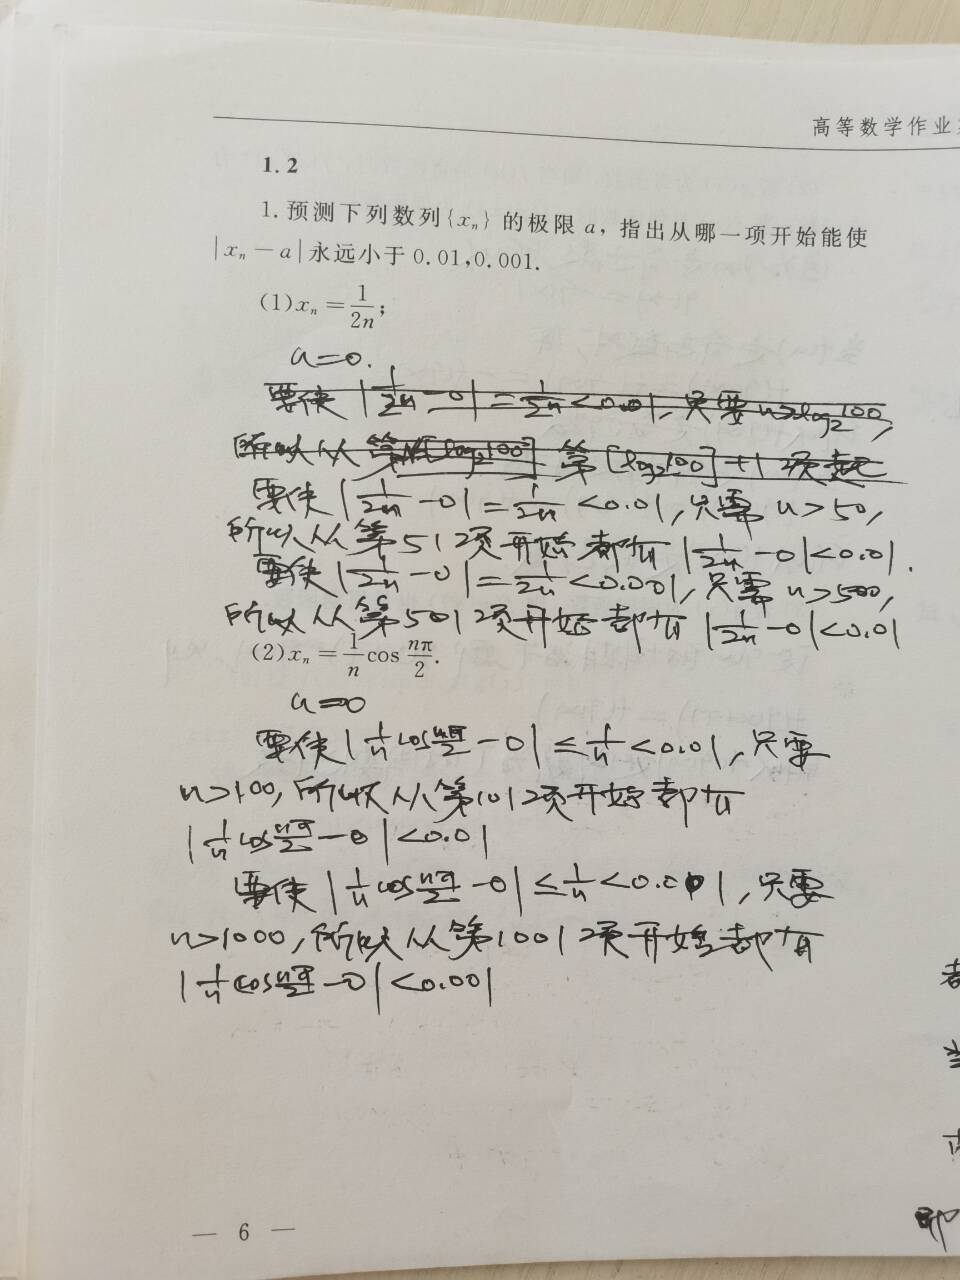 高等数学作业
1.2
1. 预测下列数列{xₙ}的极限 a, 指出从哪一项开始能使
|xₙ－a|永远小于 0.01,0.001.
(1)xₙ＝1/2n;
a=0.
要使|1/2n－0|＝1/2n<0.01, 只要n>log₂100,
所以从第N[log₂100] 第[log₂100]+1项起
要使|1/2n－0|＝1/2n<0.01,只需 n>50,
所以从第51项开始都有|1/2n－0|<0.01.
要使|1/2n－0|＝1/2n<0.001,只需 n>500,
所以从第501项开始都有|1/2n－0|<0.01
(2)xₙ＝1/n cos nπ/2.
a=0
要使|1/n cos nπ/2－0|≤1/n<0.01,只要
n>100,所以从第101项开始都有
|1/n cos nπ/2－0|<0.01
要使|1/n cos nπ/2－0|≤1/n<0.001,只要
n>1000,所以从第1001项开始都有
|1/n cos nπ/2－0|<0.001
者
当
即
— 6 —